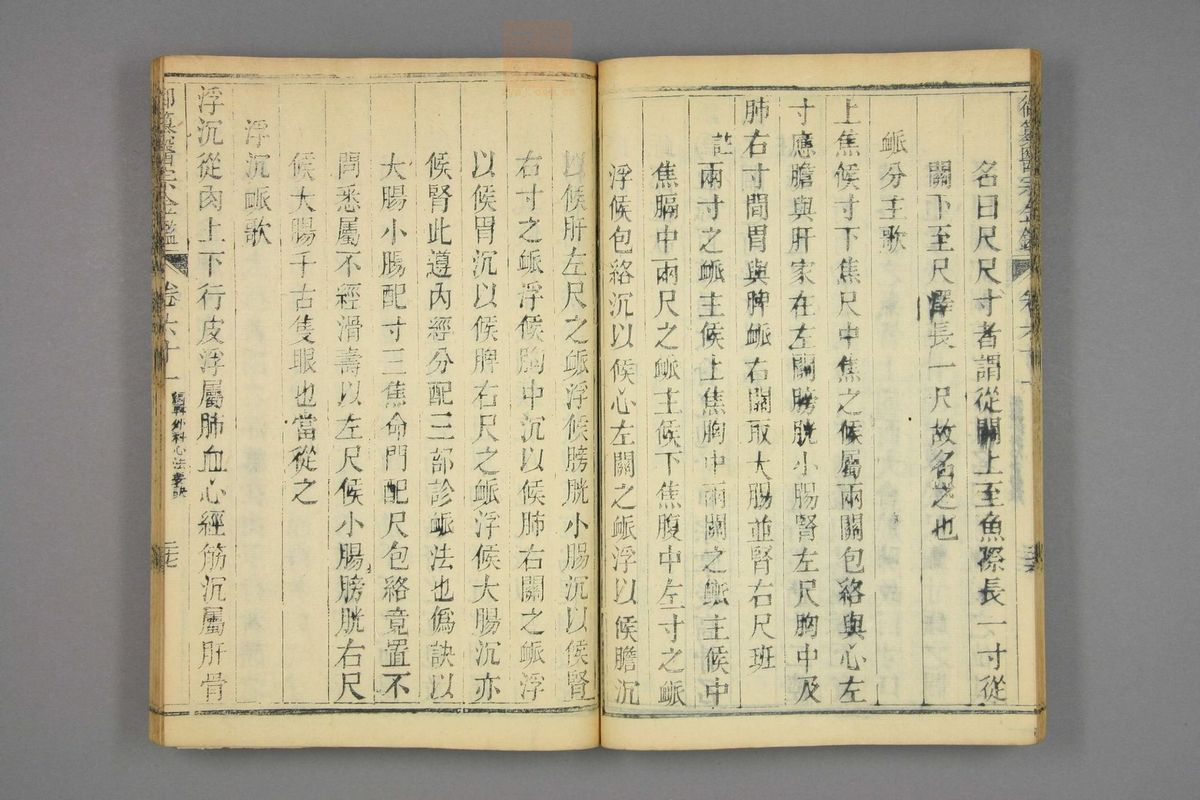 御纂醫宗金鑑 卷六十一
名曰尺尺寸者謂從關上至魚際長一寸從
關下至尺澤長一尺故名之也
䘑分主歌
上焦候寸下焦尺中焦之候屬兩關包絡與心左
寸應膽與肝家在左關膀胱小腸腎左尺胸中及
肺右寸間胃與脾䘑右關取大腸並腎右尺班
註兩寸之䘑主候上焦胸中兩關之䘑主候中
焦膈中兩尺之䘑主候下焦腹中左寸之䘑
浮候包絡沉以候心左關之䘑浮以候膽沉
以候肝左尺之䘑浮候膀胱小腸沉以候腎
右寸之䘑浮候胸中沉以候肺右關之䘑浮
以候胃沉以候脾右尺之䘑浮候大腸沉亦
候腎此遵內經分配三部診䘑法也僞訣以
大腸小腸配寸三焦命門配尺包絡竟置不
問悉屬不經滑壽以左尺候小腸膀胱右尺
候大腸千古隻眼也當從之
浮沉䘑歌
浮沉從肉上下行皮浮屬肺血心經筋沉屬肝骨
御纂醫宗金鑑 卷六十一 編輯外科心法要訣 三七